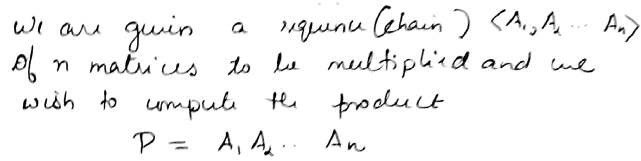 We are given a sequence (chain) <A1, A2 ... An>
of n matrices to be multiplied and we
wish to compute the product
P = A1 A2 .. An